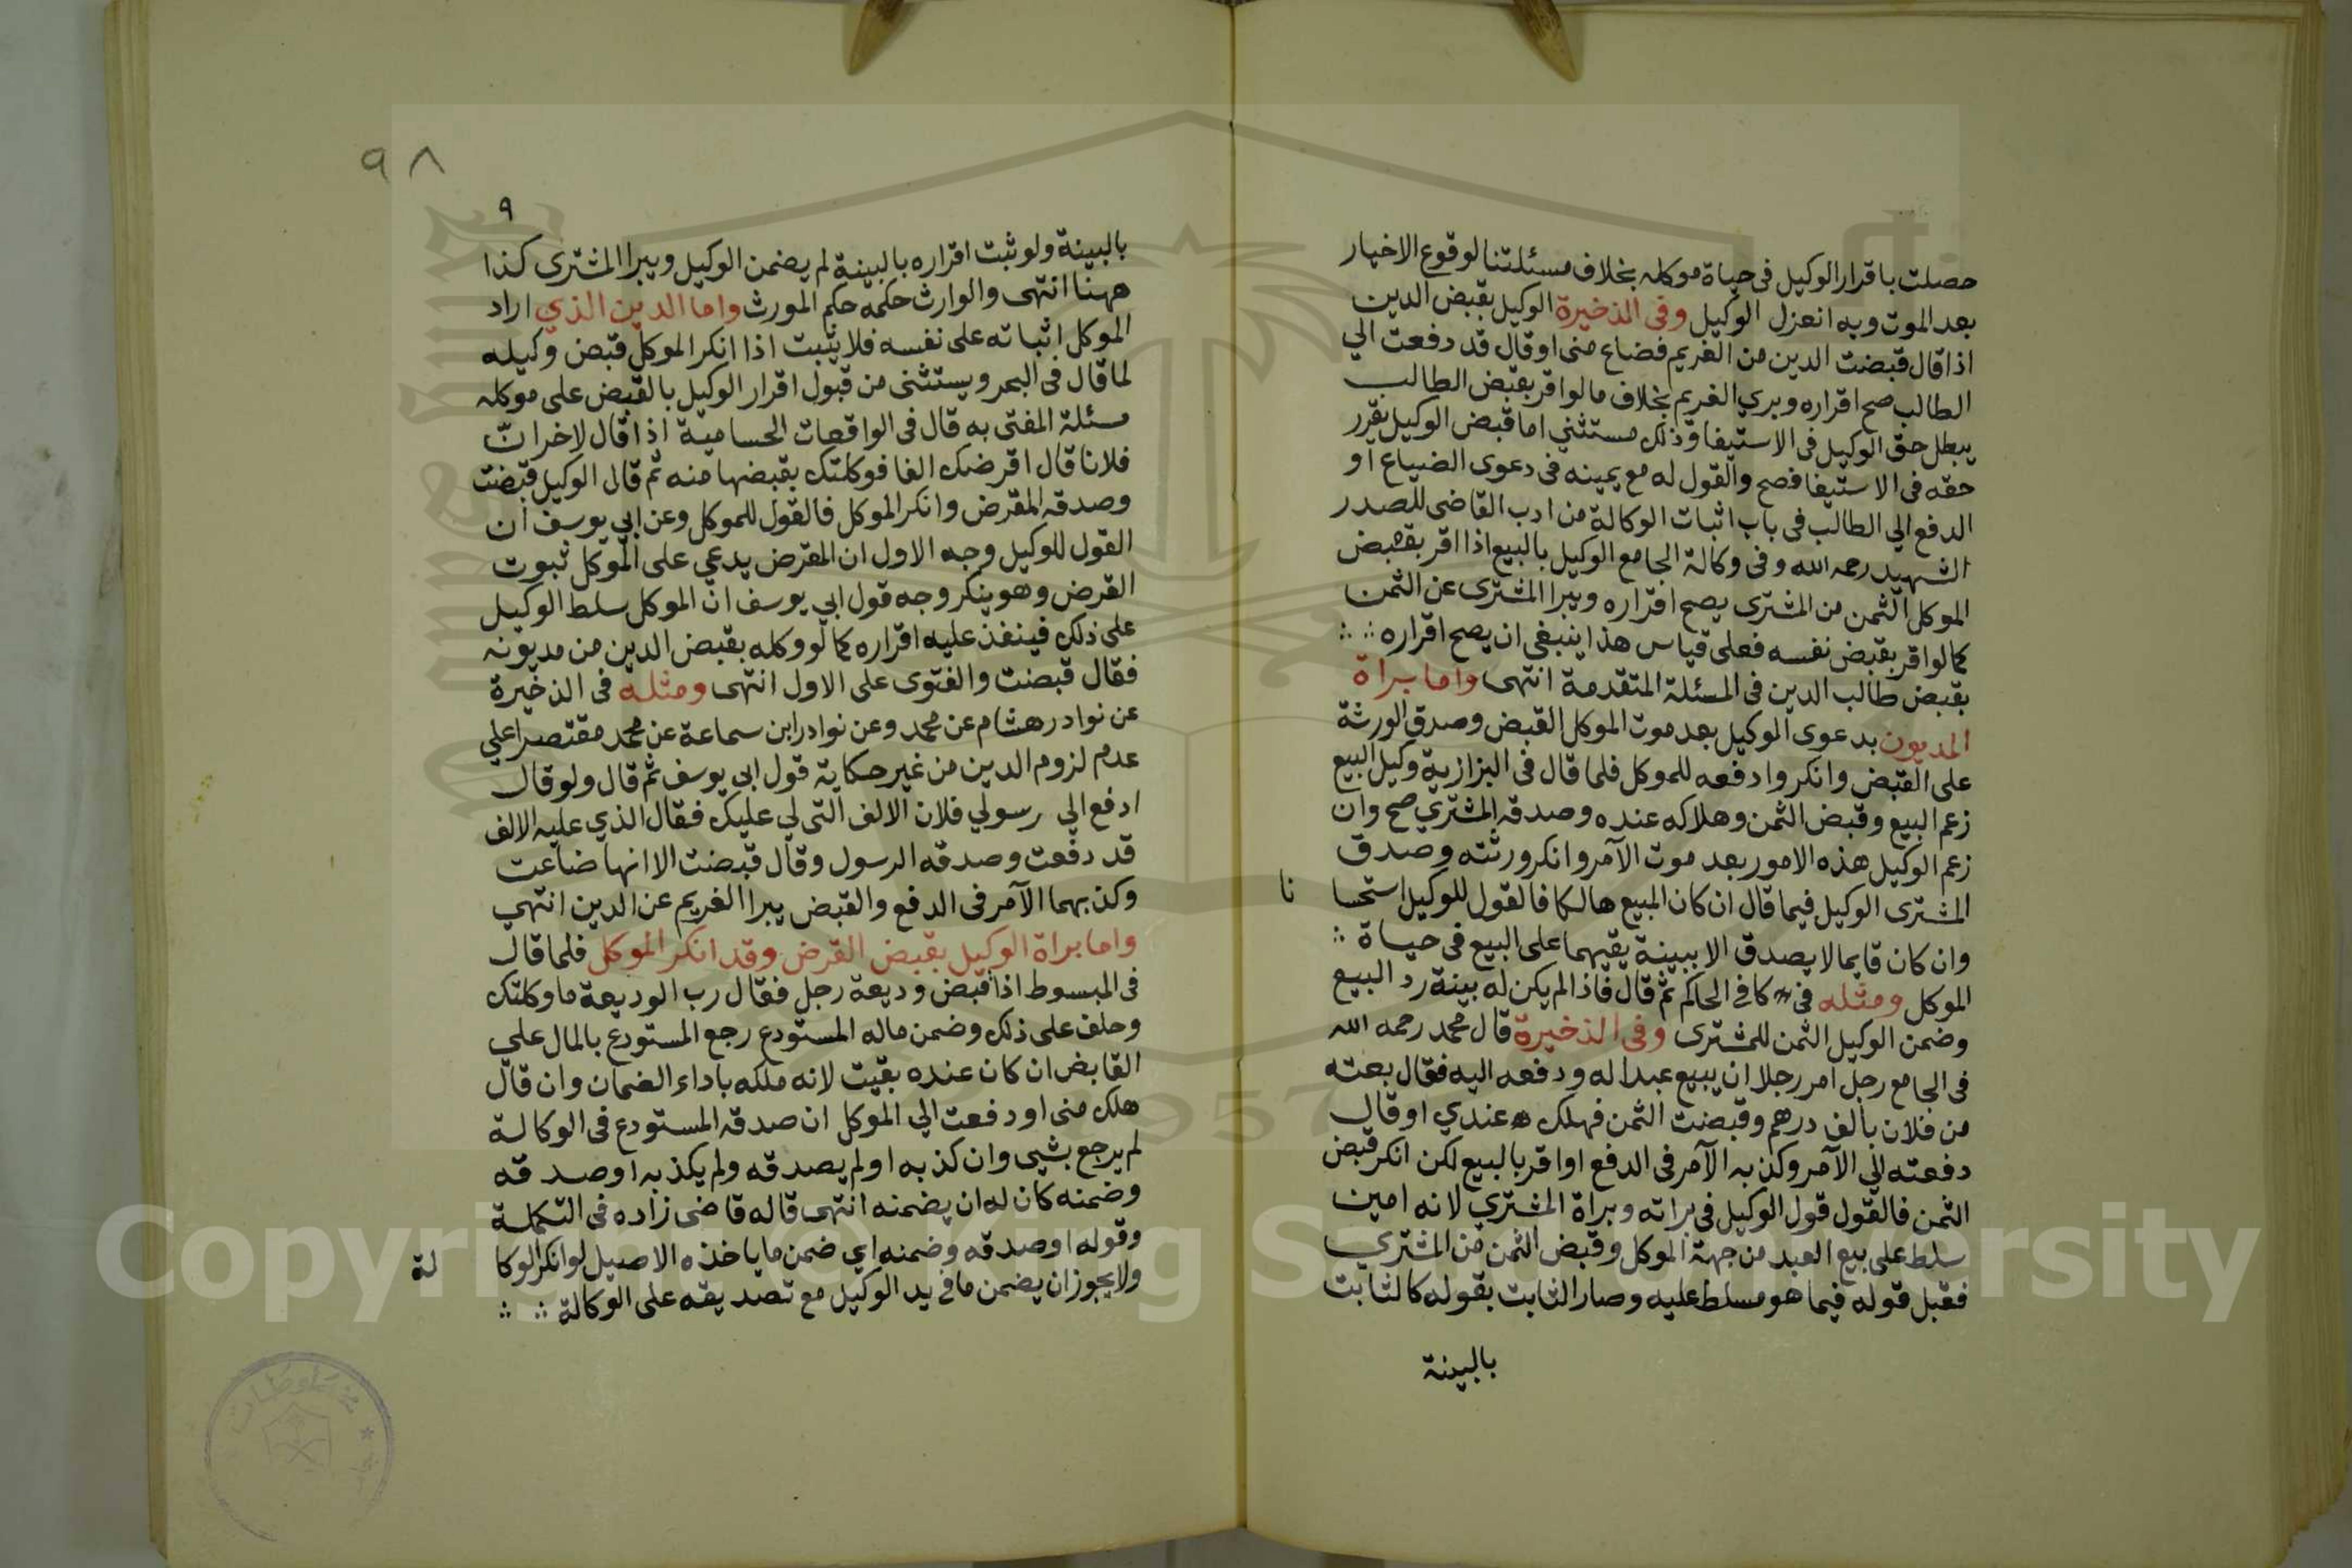 حصلت باقرار الوكيل فى حياة موكله بخلاف مسئلتنا لوقوع الاخبار
بعد الموت وبه انعزل الوكيل وفى الذخيرة الوكيل بقبض الدين
اذا قال قبضت الدين من الغريم فضاع منى او قال قد دفعت الي
الطالب صح اقراره وبري الغريم بخلاف ما لو اقر بقبض الطالب
يبطل حق الوكيل فى الاستيفا وذلك مستثنى اما قبض الوكيل يقرر
حقه فى الاستيفا فصح والقول له مع يمينه فى دعوى الضياع او
الدفع الي الطالب فى باب اثبات الوكالة من ادب القاضى للصدر
الشهيد رحمه الله وفى وكالة الجامع الوكيل بالبيع اذا اقر بقبض
الموكل الثمن من المشترى يصح اقراره ويبرا المشترى عن الثمن
كما لو اقر بقبض نفسه فعلى قياس هذا ينبغى ان يصح اقراره
بقبض طالب الدين فى المسئلة المتقدمة انتهى واما براة
المديون بدعوى الوكيل بعد موت الموكل القبض وصدق الورثة
على القبض وانكروا دفعه للموكل فلما قال فى البزازية وكيل البيع
زعم البيع وقبض الثمن وهلاكه عنده وصدقه المشتري صح وان
زعم الوكيل هذه الامور بعد موت الآمر وانكر ورثته وصدق
المشترى الوكيل فيما قال ان كان المبيع هالكا فالقول للوكيل استحسا نا
وان كان قايما لا يصدق الا ببينة يقيهما على البيع فى حياة
الموكل ومثله فى كافى الحاكم ثم قال فاذا لم يكن له بينة رد البيع
وضمن الوكيل الثمن للمشترى وفى الذخيرة قال محمد رحمه الله
فى الجامع رجل امر رجلا ان يبيع عبدا له ودفعه اليه فقال بعته
من فلان بالف درهم وقبضت الثمن فهلك عندي او قال
دفعته الي الآمر وكذبه الآمر فى الدفع او اقر بالبيع لكن انكر قبض
الثمن فالقول قول الوكيل فى براته وبراة المشتري لانه امين
سلط على بيع العبد من جهة الموكل وقبض الثمن من المشتري
فقبل قوله فيما هو مسلط عليه وصار الثابت بقوله كالثابت
بالبينة
٩٨
٩
بالبينة ولو ثبت اقراره بالبينة لم يضمن الوكيل ويبرا المشترى كذا
ههنا انتهى والوارث حكمه حكم المورث واما الدين الذي اراد
الموكل اثباته على نفسه فلا يثبت اذا انكر الموكل قبض وكيله
لما قال فى البحر ويستثنى من قبول اقرار الوكيل بالقبض على موكله
مسئلة المفتى به قال فى الواقعات الحسامية اذا قال لاخر ان
فلانا قال اقرضك الفا فوكلتك بقبضها منه ثم قال الوكيل قبضت
وصدقه المقرض وانكر الموكل فالقول للموكل وعن ابي يوسف ان
القول للوكيل وجه الاول ان المقرض يدعي على الموكل ثبوت
القرض وهو ينكر وجه قول ابي يوسف ان الموكل سلط الوكيل
على ذلك فينفذ عليه اقراره كما لو وكله بقبض الدين من مديونه
فقال قبضت والفتوى على الاول انتهى ومثله فى الذخيرة
عن نوادر هشام عن محمد وعن نوادر ابن سماعة عن محمد مقتصرا على
عدم لزوم الدين من غير حكاية قول ابي يوسف ثم قال ولو قال
ادفع الي رسولي فلان الالف التى لي عليك فقال الذي عليه الالف
قد دفعت وصدقه الرسول وقال قبضت الا انها ضاعت
وكذبهما الآمر فى الدفع والقبض يبرا الغريم عن الدين انتهي
واما براة الوكيل بقبض القرض وقد انكر الموكل فلما قال
فى المبسوط اذا قبض وديعة رجل فقال رب الوديعة ما وكلتك
وحلف على ذلك وضمن ماله المستودع رجع المستودع بالمال على
القابض ان كان عنده بقيت لانه ملكه باداء الضمان وان قال
هلك منى او دفعت الي الموكل ان صدقه المستودع فى الوكالة
لم يرجع بشيى وان كذبه او لم يصدقه ولم يكذبه او صدقه
وضمنه كان له ان يضمنه انتهى قاله قاضى زاده فى التكملة
وقوله او صدقه وضمنه اي ضمن ما ياخذه الاصيل لو انكر الوكا لة
ولا يجوز ان يضمن ما فى يد الوكيل مع تصديقه على الوكالة
Copyright © King Saud University
1957